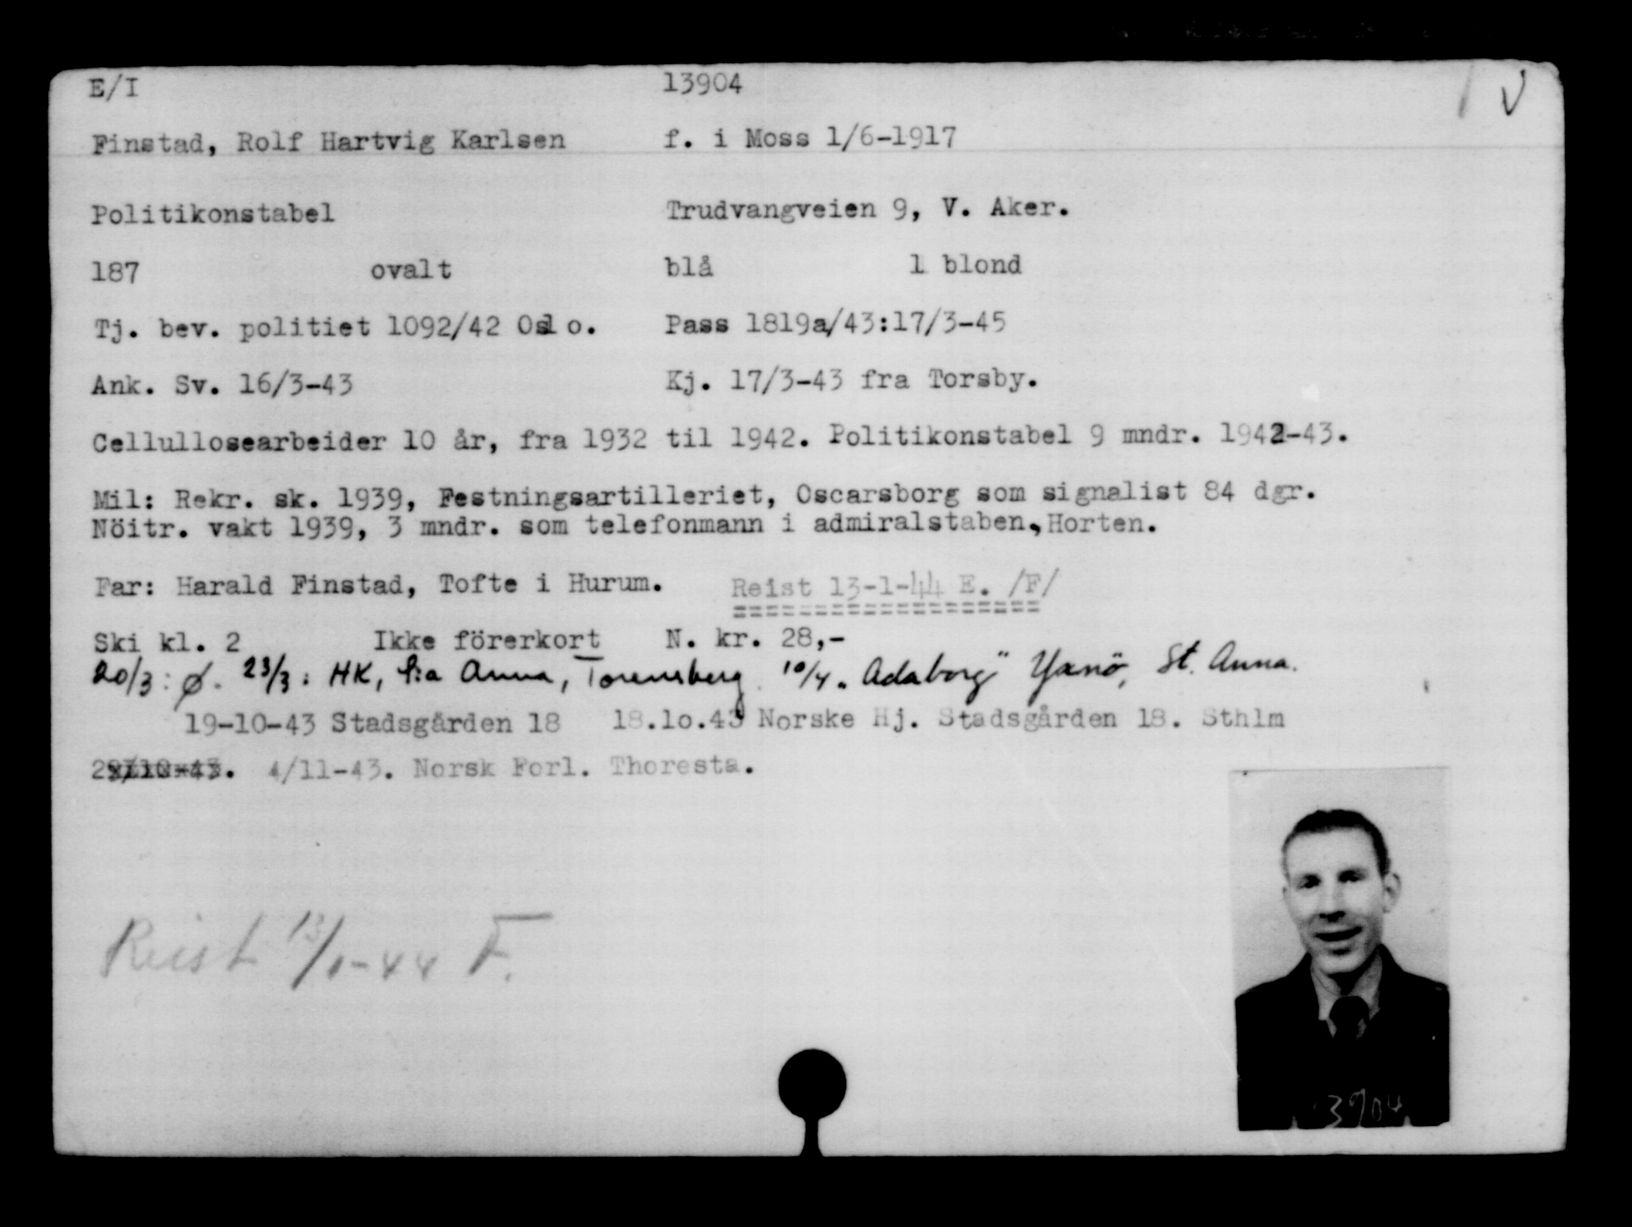 E/I 13904 V
Finstad, Rolf Hartvig Karlsen f. i Moss 1/6-1917
Politikonstabel Trudvangveien 9, V. Aker.
187 ovalt blå l blond
Tj. bev. politiet 1092/42 Oslo. Pass 1819a/43:17/3-45
Ank. Sv. 16/3-43 Kj. 17/3-43 fra Torsby.
Cellullosearbeider 10 år, fra 1932 til 1942. Politikonstabel 9 mndr. 1942-43.
Mil: Rekr. sk. 1939, Festningsartilleriet, Oscarsborg som signalist 84 dgr.
Nöitr. vakt 1939, 3 mndr. som telefonmann i admiralstaben, Horten.
Far: Harald Finstad, Tofte i Hurum. Reist 13-1-44 E. /F/
Ski kl. 2 Ikke förerkort N. kr. 28,-
20/3: Ø. 23/3: HK, S:a Anna, Torensberg 10/4. "Adaborg" Yxnö, St. Anna.
19-10-43 Stadsgården 18 18.1o.43 Norske Hj. Stadsgården 18. Sthlm
4/11-43. Norsk Forl. Thoresta.
Reist 13/1-44 F.
3904